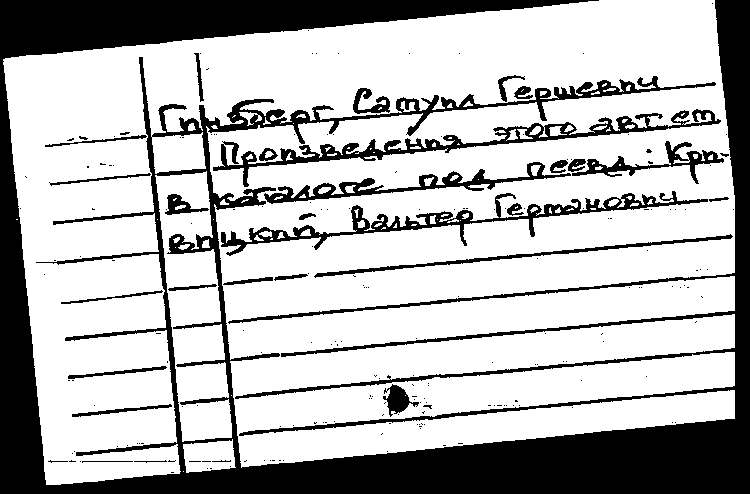 Гинзберг, Самуил Гершевич
Произведения этого авт см
в каталоге под псевд.: Кри-
вицкий, Вальтер Германович